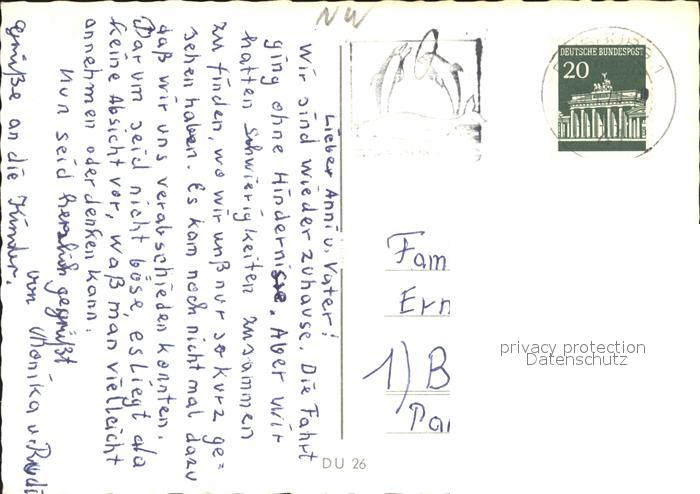 NW
Lieber Anni u. Vater!
Wir sind wieder zuhause. Die Fahrt
ging ohne Hindernisse. Aber wir
hatten Schwierigkeiten zusammen
zu finden, wo wir unß nur so kurz ge=
sehen haben. Es kam noch nicht mal dazu
daß wir uns verabschieden konnten.
Darum seid nicht böse, es liegt da
keine Absicht vor, waß man vielleicht
annehmen oder denken kann.
Nun seid herzlich gegrüßt
von Monika u. Rudi
Grüße an die Kinder.
DEUTSCHE BUNDESPOST
20
Fam
Ern
1) B
Par
privacy protection
Datenschutz
DU 26